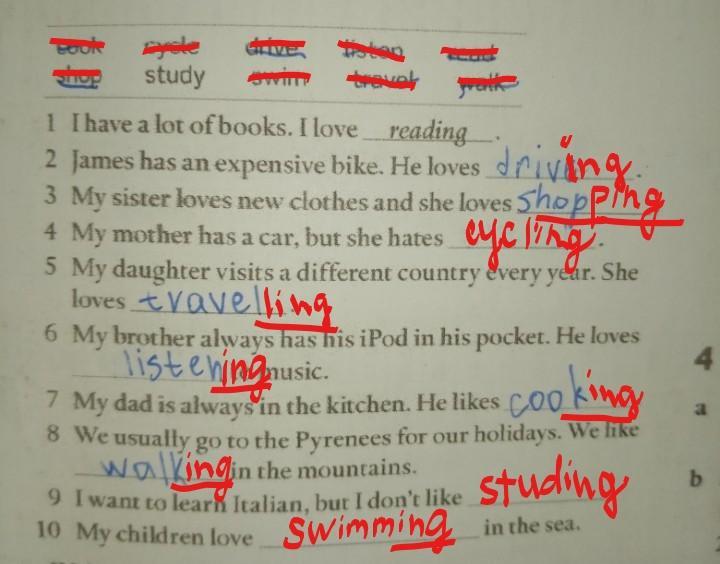 cook cycle drive listen read
shop study swim travel walk
1 I have a lot of books. I love reading.
2 James has an expensive bike. He loves driving.
3 My sister loves new clothes and she loves shopping
4 My mother has a car, but she hates cycling.
5 My daughter visits a different country every year. She
loves travelling
6 My brother always has his iPod in his pocket. He loves
listening music.
7 My dad is always in the kitchen. He likes cooking
8 We usually go to the Pyrenees for our holidays. We like
walking in the mountains.
9 I want to learn Italian, but I don't like studing
10 My children love swimming in the sea.
4
a
b